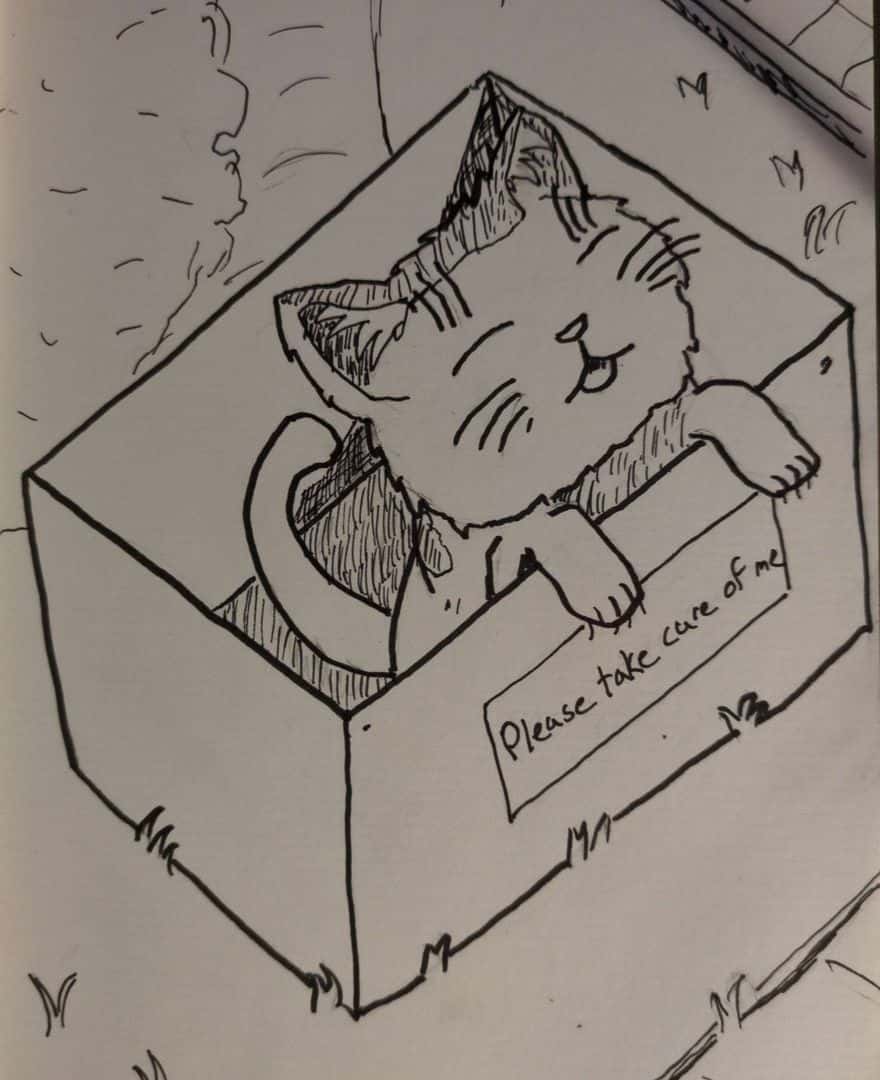 Please take care of me